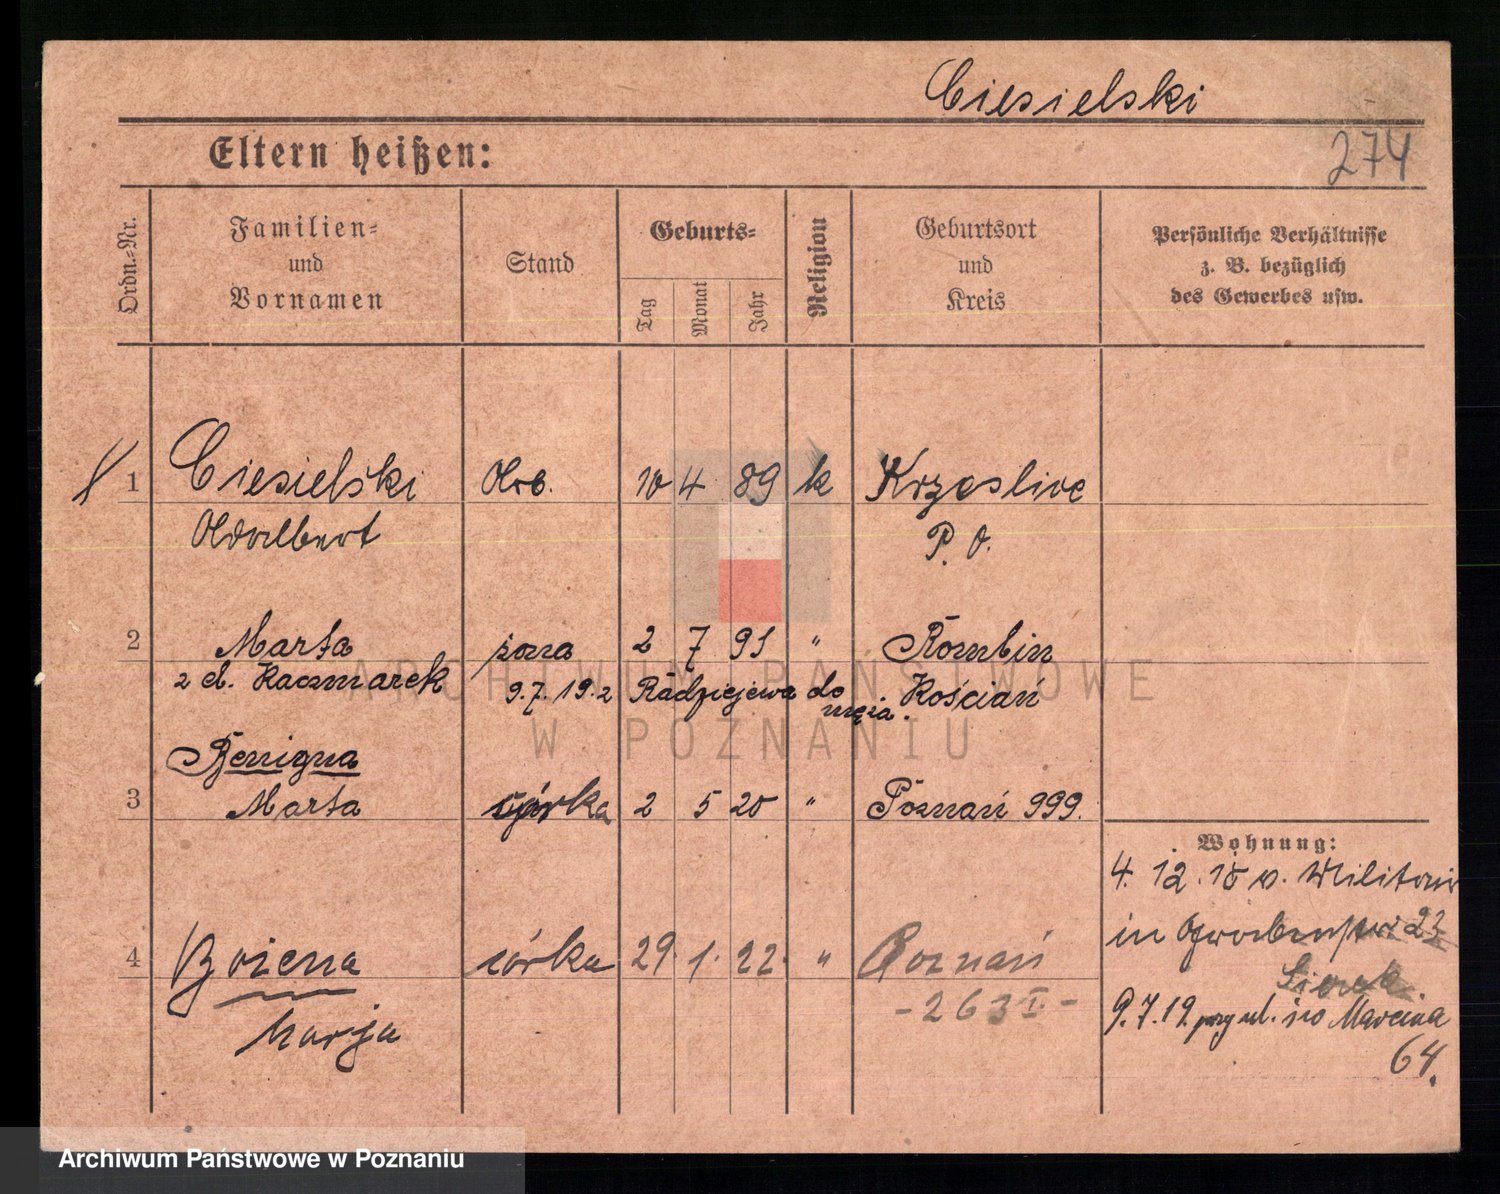 Ciesielski
Eltern heißen:
274
Ordn.-Nr.
Familien-
und
Vornamen
Stand
Geburts-
Tag
Monat
Jahr
Religion
Geburtsort
und
Kreis
Persönliche Verhältnisse
z. B. bezüglich
des Gewerbes usw.
1 Ciesielski Arb. 10 4 89 k Krzeslice
Adalbert P. O.
2 Marta żona 2 7 91 " Rombin
z d. Kaczmarek 9.7.19. z Radziejewa do męża. Kościań
Benigna
3 Marta córka 2 5 20 " Poznań 999.
Wohnung:
4. 12. 18 v. Militair
in 22
4 Bożena córka 29. 1. 22. " Poznań
Marja - 263 I -
9.7.19. przy ul. św Marcina
64.
ARCHIWUM PAŃSTWOWE
W POZNANIU
Archiwum Państwowe w Poznaniu